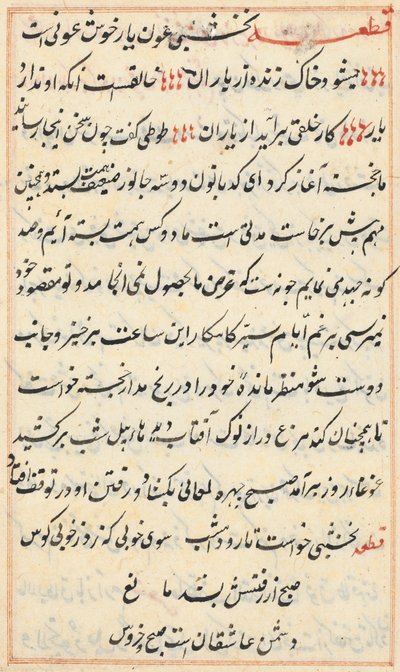 قطعه نخشبی عون یار خوش عونی است
میشود خاک زنده از یاران خالقست آنکه او ندارد
یار کار خلقی برآید از یاران طوطی گفت چون سخن بنجا رسانید
ما خجسته آغاز کرد ای کدبانو دو سه جانور ضعیف همت بستند و چنین
مهم پیش برخاست مدتی است ما دو کس همت بسته آئیم و صد
کونه جهدی نمایم چونست که غرض ما بحصول نمی انجامد و تو بمقصود خود
نمیرسی برغم ایام سبز کامکار این ساعت برخیز و جانب
دوست شو منتظر مانده خود را دریغ مدار خجسته خواست
تا همچنان کند مرغ دراز نوک آفتاب شب برکشید
غوغاء روز برآمد صبح چهره بکشاد و رفتن او در توقف افتاد
قطعه نخشبی خواست تا رود امشب سوی خوبی که زد ز خوبی کوس
صبح از رفتنش بشد مانع
دشمن عاشقان است صبح و خروس